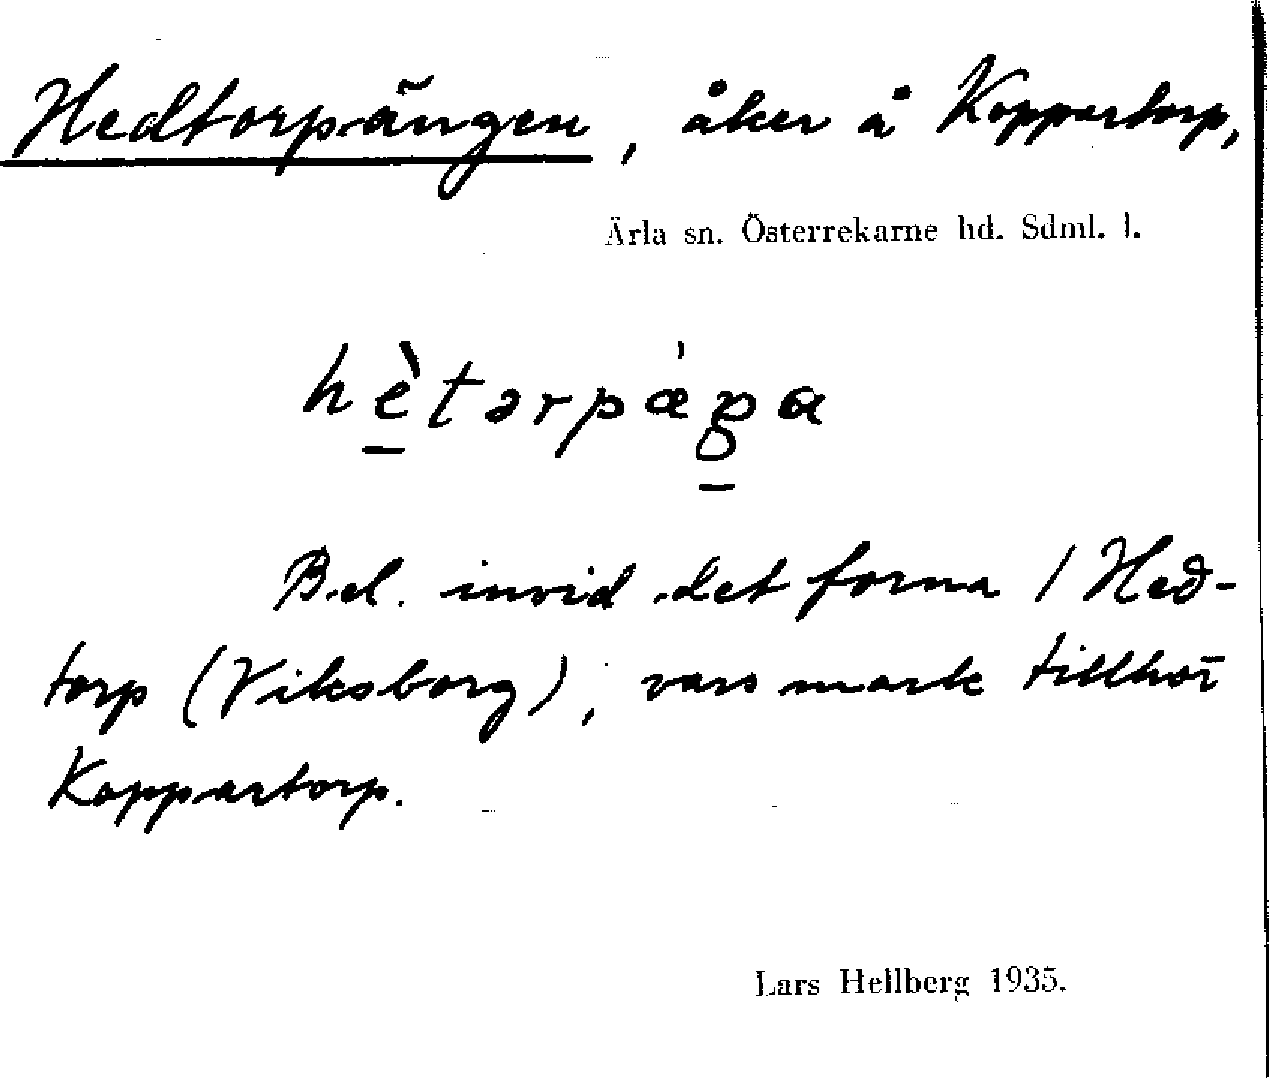 Hedtorpängen, åker å Koppartorp,
Ärla sn. Österrekarne hd. Sdml. l.
Bel. invid det forna / Hed-
torp (Viksborg), vars mark tillhör
Koppartorp.
Lars Hellberg 1935.